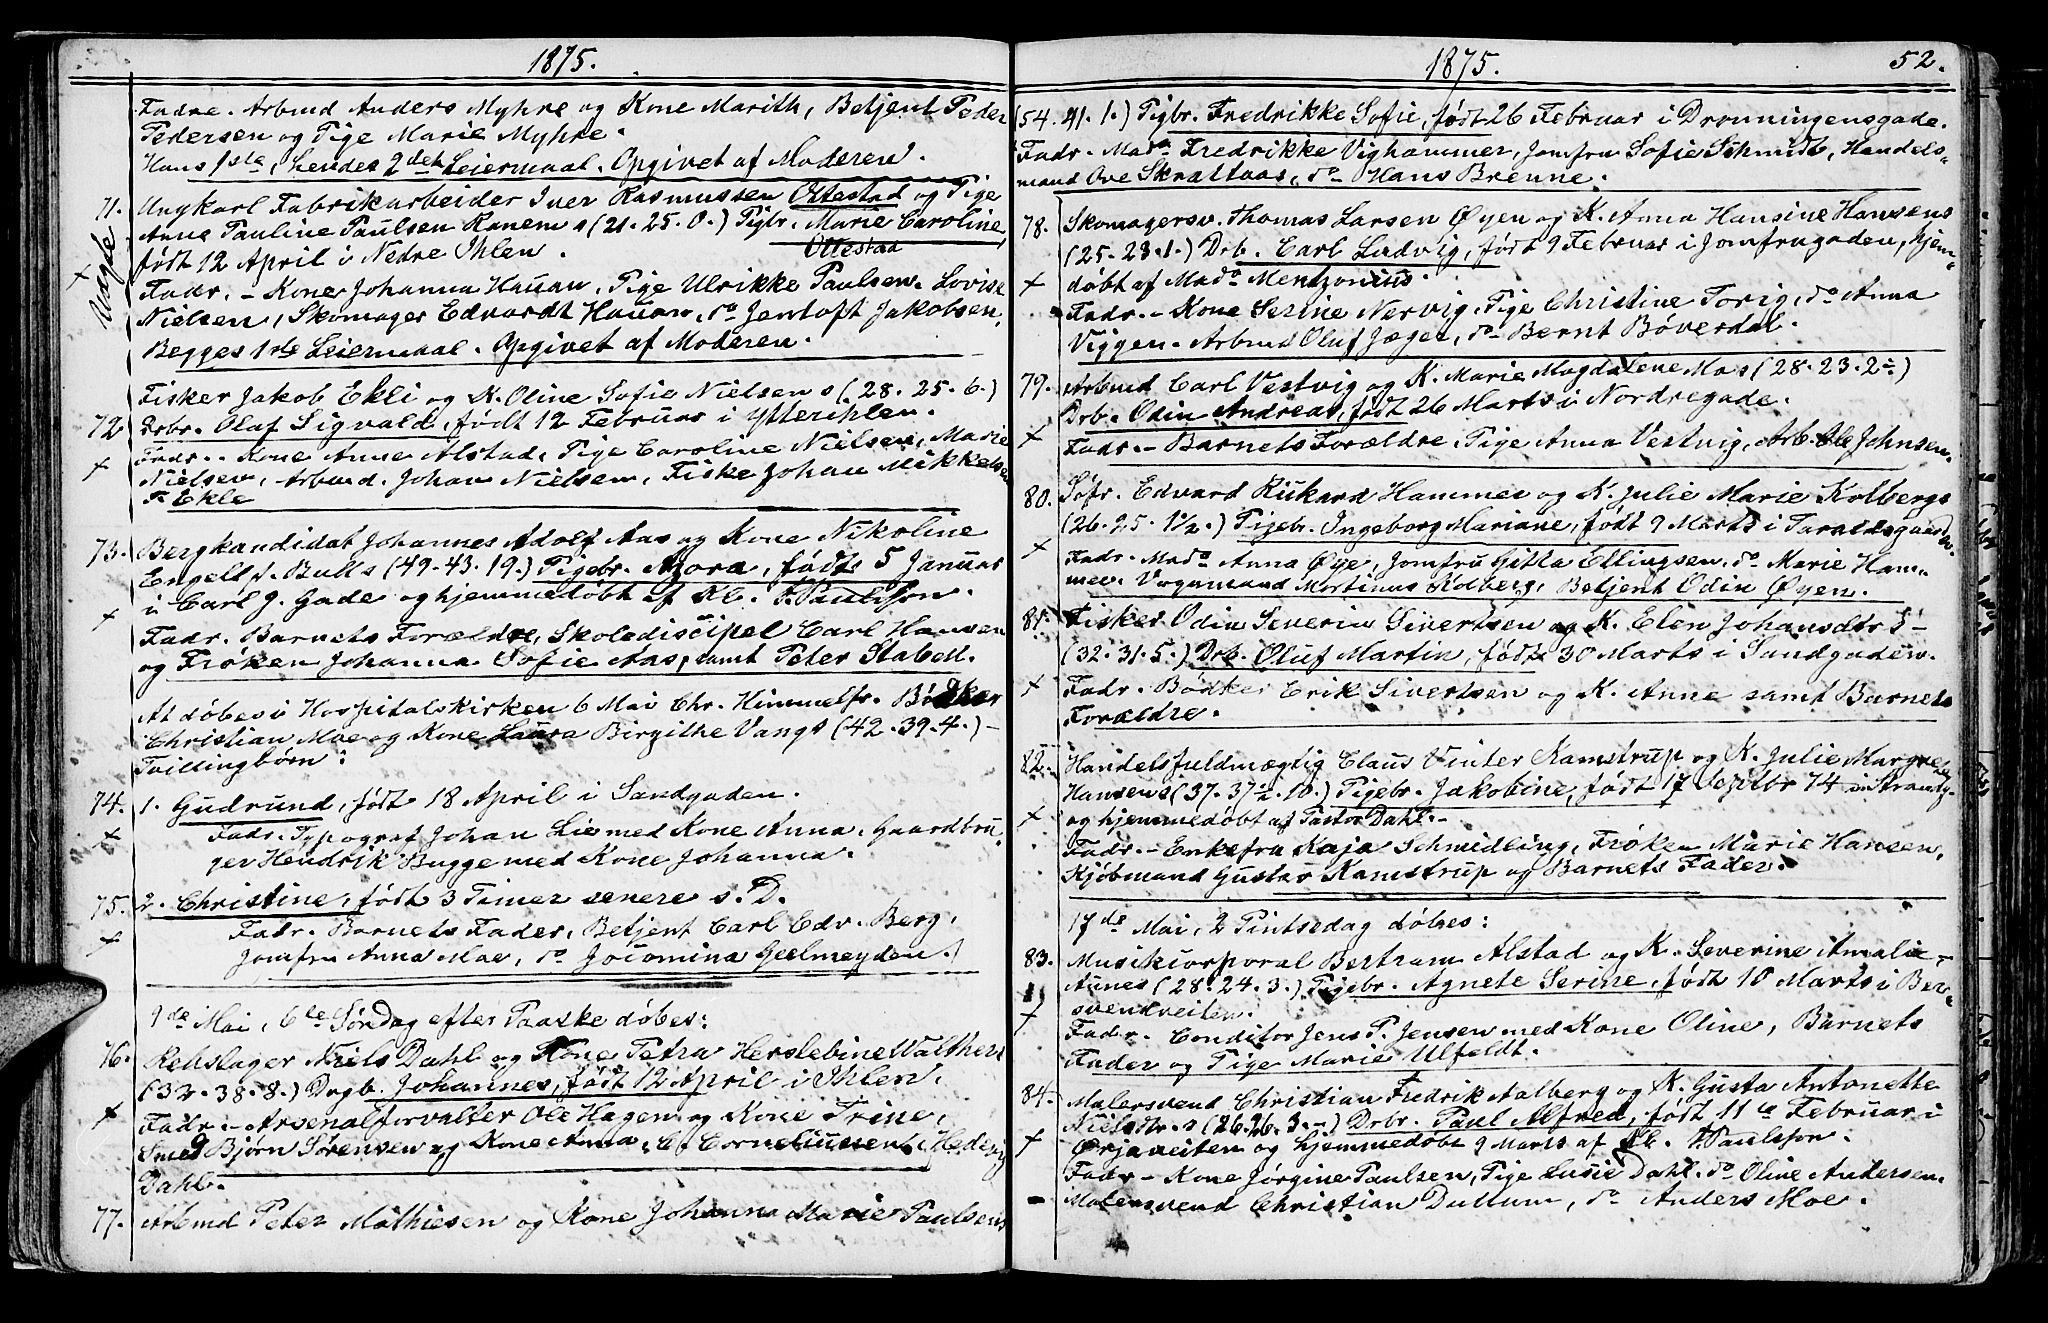 1875.
Fadre. Arbmd Anders Myhre og Kone Marith, Betjent Peder
Pedersen og Pige Marie Myhre.
Hans 1ste, hendes 2det Leiermaal. Opgivet af Moderen.
71. Ungkarl Fabrikarbeider Iver Rasmussen Ottestad og Pige
Anne Pauline Paulsen Ranem s (21. 25. 0.) Pigbr. Marie Caroline,
Ottestad
født 12 April i Nedre Ihlen.
Uægte
Fadr. - Kone Johanna Hauan, Pige Ulrikke Paulsen. Lovise
Nielsen, Skomager Edvardt Hauan, do Jentoft Jakobsen,
Begges 1ste Leiermaal. Opgivet af Moderen.
Fisker Jakob Ekli og K. Oline Sofie Nielsen s (28. 25. 6.)
72 Drbr. Olaf Sigvald, født 12 Februar i Ytterihlen.
Fadr. - Kone Anne Alstad, Pige Caroline Nielsen, Marie
Nielsen, Arbmd. Johan Nielsen, Fiske Johan Mikkelsen
Ekle
73. Bergkandidat Johannes Adolf Aas og Kone Nikoline
Engelt f. Bulls (49. 43. 19.) Pigebr. Azora, født 5 Januar
i Carl J. Gade og hjemmedøbt af Kl. Paulsson.
Fadr. Barnets Forældre, Skoledicipel Carl Hansen
og Frøken Johanna Sofie Aas, samt Peter Stabell.
At døbes i Hospitalskirken 6 Mai Chr. Himmelfr. Bødker
Christian Moe og Kone Laura Birgithe Vangs (42. 39. 4.) -
Tvillingbørn:
74. 1. Gudrund, født 18 April i Sandgaden.
Fadr. Typograf Johan Lie med Kone Anna. Gaardbru
ger Hendrik Bugge med Kone Johanna.
75. 2. Christine, født 3 Timer senere s. D.
Fadr. Barnets Fader, Betjent Carl Edv. Berg,
Jomfru Anna Moe, do Jocomina Geelmeyden.
9de Mai, 6te Søndag efter Paaske døbes:
76. Rebslager Niels Dahl og Kone Petra Herslebine Walthers
(32. 38. 8.) Drgb. Johannes, født 12 April i Ihlen.
Fadr. - Arsenalforvalter Ole Hagen og Kone Trine,
Smed Bjørn Sørensen og Kone Anna, C. Corneliussen, Hedevig
Dahl.
77. Arbmd Peter Mathiesen og Kone Johanna Marie Paulsens
1875. 52.
(54. 41. 1.) Pigbr. Fredrikke Sofie, født 26 Februar i Dronningensgade.
Fadr. - Mada Fredrikke Vighammer, Jomfru Sofie Schmidt, Handels-
mand Ove Skrattaas, do Hans Brenne.
78. Skomagersv. Thomas Larsen Øyen og K. Anna Hansine Hansens
(25. 23. 1.) Drb. Carl Ludvig, født 9 Februar i Jomfrugaden, hjem-
døbt af Mada Mentzonius.
Fadr. - Kone Serine Nervig, Pige Christine Torig, do Anna
Viggen. Arbmd Oluf Jæger, do Bernt Bøverdal.
79. Arbmd Carl Vestvig og K. Marie Magdalene Mas (28. 23. 2÷)
Drb. Odin Andreas, født 26 Marts i Nordregade.
Fadr. - Barnets Forældre, Pige Anna Vestvig, Arb. Ole Johnsen.
80. Sofr. Edvard Rickard Hammer og K. Julie Marie Kolbergs
(26. 25. 1½.) Pigebr. Ingeborg Mariane, født 9 Marts i Taraldsgaarden.
Fadr. Mada Anna Øye, Jomfru Gitta Ellingsen, do Marie Ham-
mer. Vognmand Mortinus Kolberg, Betjent Odin Øyen.
81. Fisker Odin Severin Sivertsen og K. Elen Johansdtr S-
(32. 31. 5.) Drb. Oluf Martin, født 30 Marts i Sandgaden.
Fadr. Bødker Erik Sivertsen og K. Anne samt Barnets
Forældre.
82. Handelsfuldmægtig Claus Vinter Kamstrup og K. Julie Margrethe
Hansens (37. 37½. 10.) Pigebr. Jakobine, født 17 Septbr 74 i Strandg.
og hjemmedøbt af Pastor Dahl. -
Fadr. - Enkefru Kaja Schmidling, Frøken Marie Hansen,
Kjøbmand Gustav Kamstrup og Barnets Fader.
17de Mai, 2 Pintsedag døbes:
83. Musikcorporal Bertram Alstad og K. Severine Amalie -
Aunes (28. 24. 3.) Pigebr. Agnete Serine, født 10 Marts i Ber-
svendveiten.
Fadr. Conditor Jens P. Jensen med Kone Oline, Barnets
Fader og Pige Marie Ulfeldt.
84. Malersvend Christian Fredrik Aalberg og K. Gusta Antonette
Nielsdtr. s (26. 26. 3. -) Drbr. Paul Alfred, født 11te Februar i
Ørjaveiten og hjemmedøbt 9 Marts af Kl. Paulsson.
Fadr - Kone Jørgine Paulsen, Pige Lusie Dahl. do Oline Andersen.
Malersvend Christian Dullum, do Anders Moe.